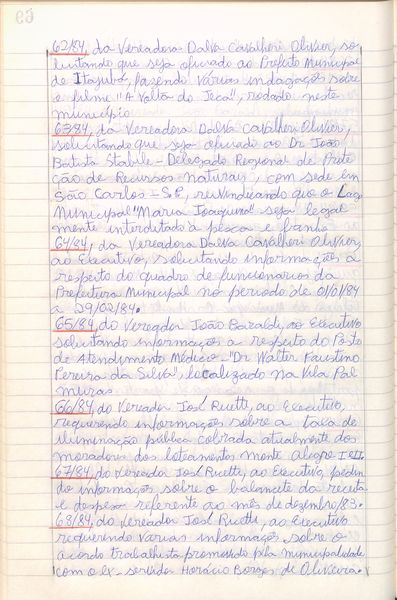 62/84, da Vereadora Dalva Cavalheri Olivier, so
licitando que seja oficiado ao Prefeito Municipal
de Itajubá, fazendo várias indagações sobre
o filme "A Volta do Jeca", rodado neste
município.
63/84, da Vereadora Dalva Cavalheri Olivier,
solicitando que seja oficiado ao Dr. João
Batista Stabile - Delegado Regional de Prote
ção de Recursos Naturais, com sede em
São Carlos - S.P, reivindicando que o Lago
Municipal "Maria Joaquina" seja legal
mente interditado à pesca e banho
64/84, da Vereadora Dalva Cavalheri Olivier,
ao Executivo, solicitando informações a
respeito do quadro de funcionários da
Prefeitura Municipal no período de 01/01/84
a 29/02/84.
65/84, do Vereador João Baraldi, ao Executivo
solicitando informações a respeito do Posto
de Atendimento Médico - "Dr Walter Faustino
Pereira da Silva", localizado na Vila Pal
miras.
66/84, do Vereador José Ruette, ao Executivo,
requerendo informações sobre a taxa de
iluminação pública cobrada atualmente dos
moradores dos loteamentos Monte Alegre I e II.
67/84, do Vereador José Ruette, ao Executivo, pedin
do informações sobre o balancete da receita
e despesa referente ao mês de dezembro/83.
68/84, do Vereador José Ruette, ao Executivo
requerendo várias informações sobre o
acordo trabalhista promovido pela municipalidade
com o ex-servidor Horácio Borges de Oliveira.